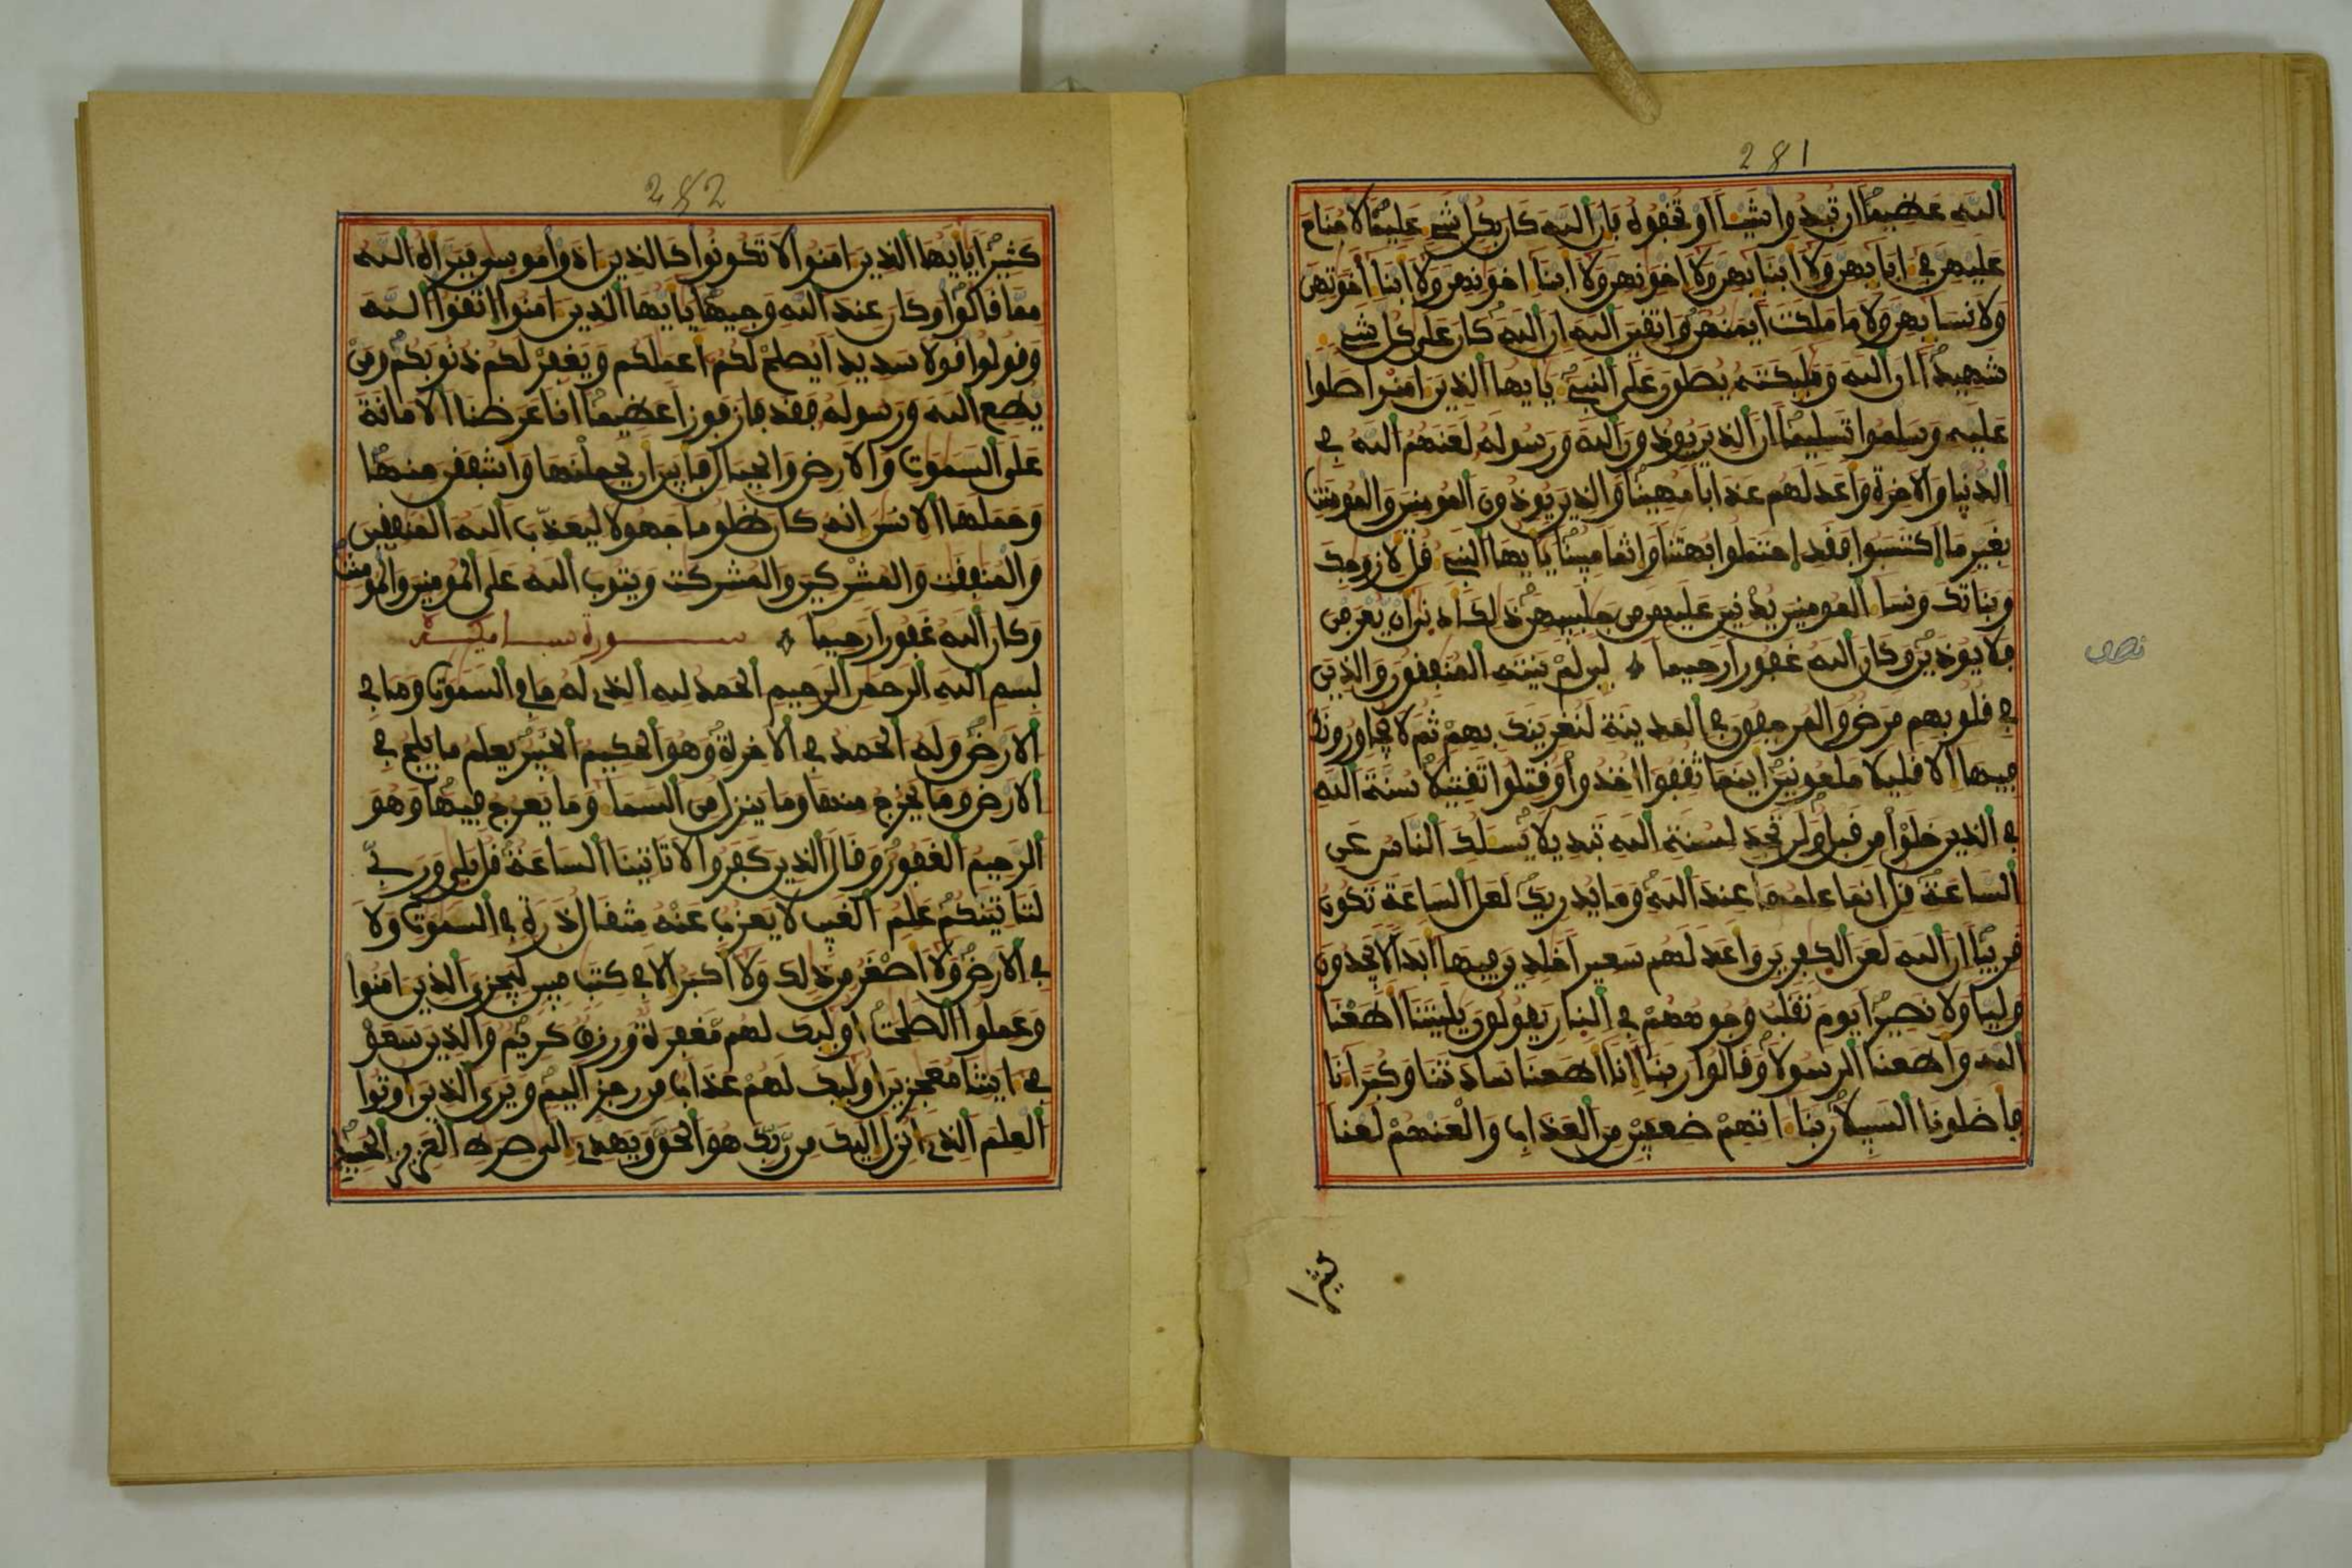 281
الله عظيما ان تبدوا شيـا او تخفوه فان الله كان بكل شىء عليما لا جناح
عليهن في ءابايهن ولا ابنايهن ولا اخونهن ولا ابنا اخونهن ولا ابنا اخوتهن
ولا نسايهن ولا ما ملكت ايمنهن واتقين الله ان الله كان على كل شىء
شهيدا ان الله ومليكته يصلون على النبيء يايها الذين امنوا صلوا
عليه وسلموا تسليما ان الذين يوذون الله ورسوله لعنهم الله في
الدنيا والاخرة واعد لهم عذابا مهينا والذين يوذون المومنين والمومنت
بغير ما اكتسبوا فقد احتملوا بهتنا واثما مبينا يايها النبيء قل لازوجك
وبناتك ونسا المومنين يدنين عليهن من جلبيبهن ذلك ادنى ان يعرفن
فلا يوذين وكان الله غفورا رحيما لين لم ينته المنفقون والذين
نصف
في قلوبهم مرض والمرجفون في المدينة لنغرينك بهم ثم لا يجاورونك
فيها الا قليلا ملعونين اينما ثقفوا اخذوا وقتلوا تقتيلا سنة الله
في الذين خلوا من قبل ولن تجد لسنة الله تبديلا يسلك الناس عن
الساعة قل انما علمها عند الله وما يدريك لعل الساعة تكون
قريبا ان الله لعن الكفرين واعد لهم سعيرا خلدين فيها ابدا لا يجدون
وليا ولا نصيرا يوم تقلب وجوههم في النار يقولون يليتنا اطعنا
الله واطعنا الرسولا وقالوا ربنا انا اطعنا سادتنا وكبرانا
فاضلونا السبيلا ربنا اتهم ضعفين من العذاب والعنهم لعنا
كثيرا
282
كثيرا يايها الذين امنوا لا تكونوا كالذين اذوا موسى فبراه الله
مما قالوا وكان عند الله وجيها يايها الذين امنوا اتقوا الله
وقولوا قولا سديدا يصلح لكم اعملكم ويغفر لكم ذنوبكم ومن
يطع الله ورسوله فقد فاز فوزا عظيما انا عرضنا الامانة
على السموت والارض والجبال فابين ان يحملنها واشفقن منها
وحملها الانسن انه كان ظلوما جهولا ليعذب الله المنفقين
والمنفقت والمشركين والمشركت ويتوب الله على المومنين والمومنت
وكان الله غفورا رحيما سورة سبا مكية
بسم الله الرحمن الرحيم الحمد لله الذي له ما في السموت وما في
الارض وله الحمد في الاخرة وهو الحكيم الخبير يعلم ما يلج في
الارض وما يخرج منها وما ينزل من السما وما يعرج فيها وهو
الرحيم الغفور وقال الذين كفروا لا تاتينا الساعة قل بلى وربي
لتاتينكم علم الغيب لا يعزب عنه مثقال ذرة في السموت ولا
في الارض ولا اصغر من ذلك ولا اكبر الا في كتب مبين ليجزي الذين امنوا
وعملوا الصلحت اوليك لهم مغفرة ورزق كريم والذين سعو
في ايتنا معجزين اوليك لهم عذاب من رجز اليم ويرى الذين اوتوا
العلم الذي انزل اليك من ربك هو الحق ويهدي الى صرط العزيز الحميد